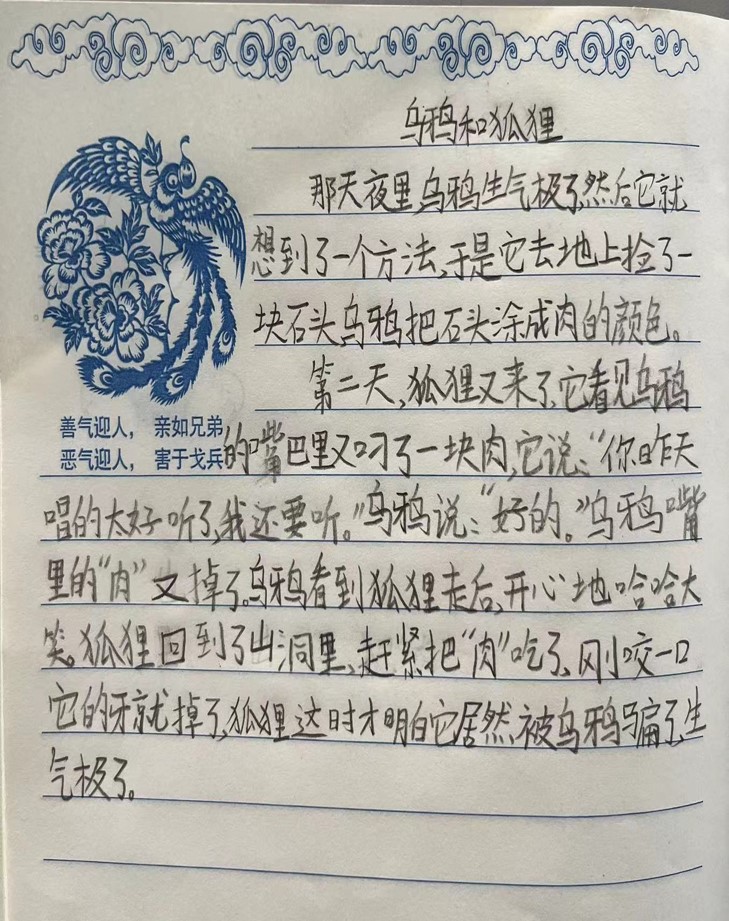 乌鸦和狐狸
那天夜里,乌鸦生气极了,然后它就
想到了一个方法,于是它去地上捡了一
块石头,乌鸦把石头涂成肉的颜色。
第二天,狐狸又来了,它看见乌鸦
善气迎人, 亲如兄弟
恶气迎人, 害于戈兵
的嘴巴里又叼了一块肉,它说:“你昨天
唱的太好听了,我还要听。”乌鸦说:“好的。”乌鸦嘴
里的“肉”又掉了。乌鸦看到狐狸走后,开心地哈哈大
笑。狐狸回到了山洞里,赶紧把“肉”吃了,刚咬一口
它的牙就掉了,狐狸这时才明白它居然被乌鸦骗了,生
气极了。